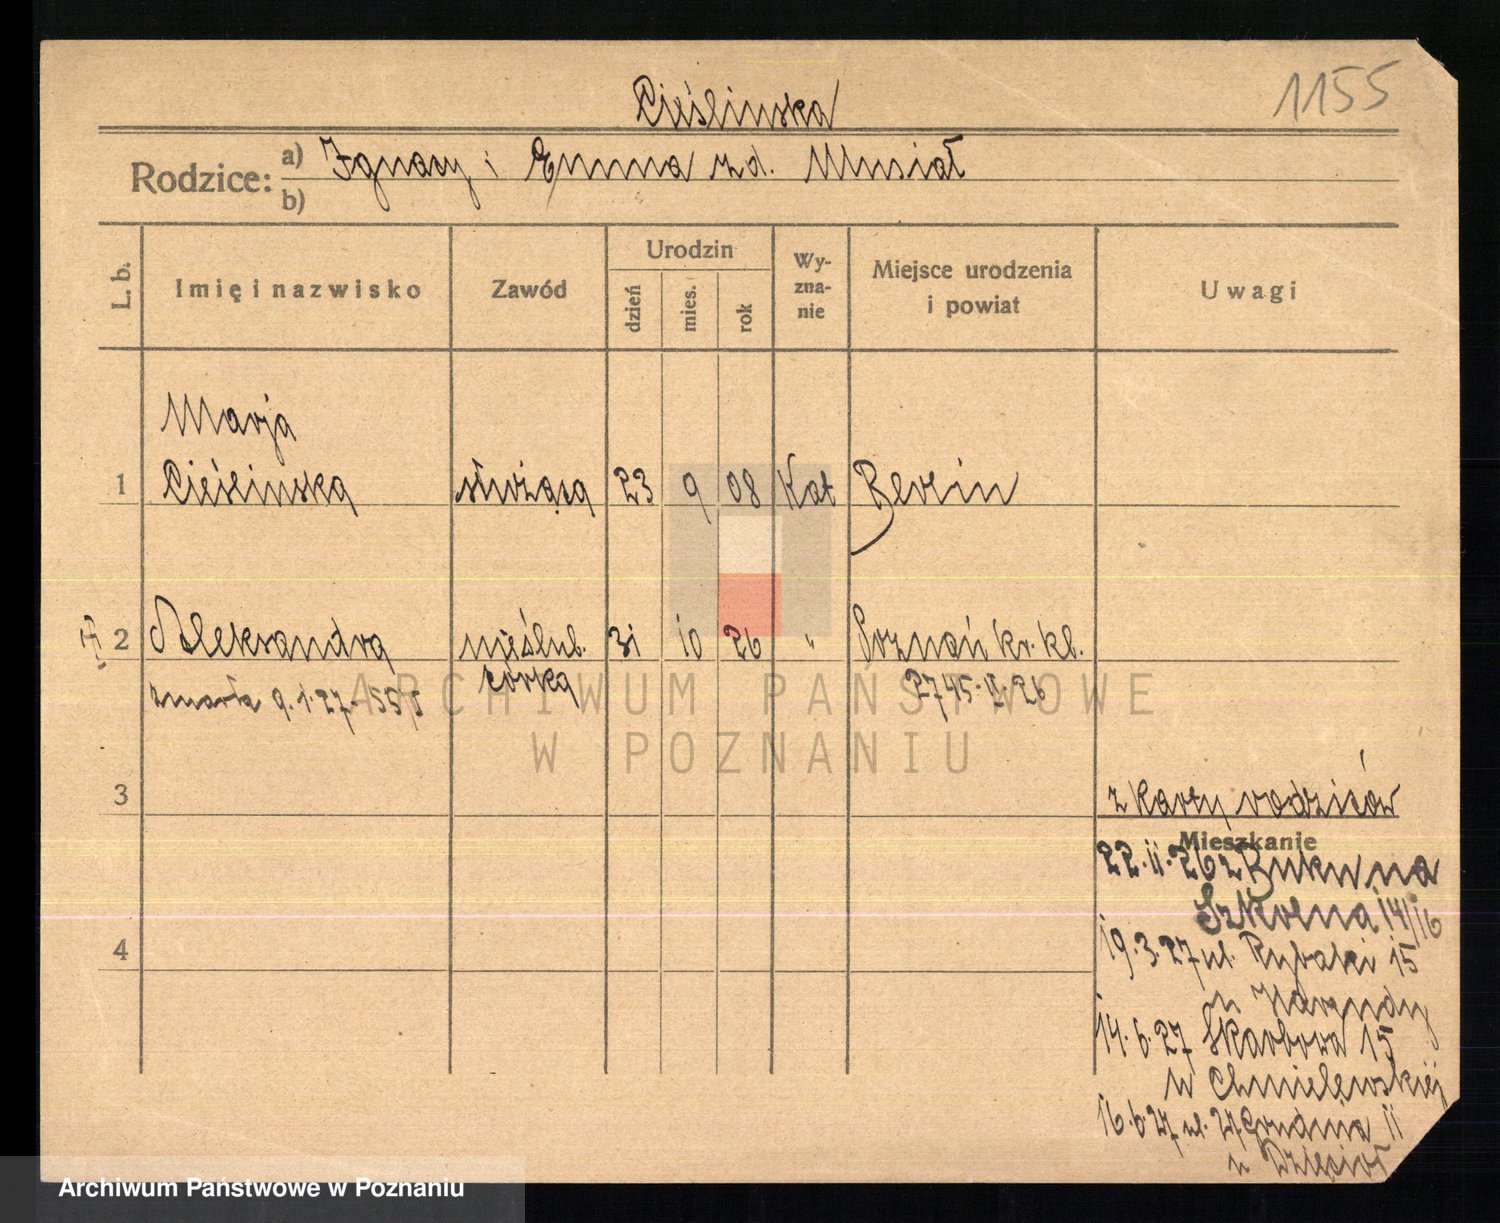 Cieślinska
1155
Rodzice:
a) Ignacy i Emma zd. Musiał
b)
L. b.
Imię i nazwisko
Zawód
Urodzin
dzień
mies.
rok
Wy-
zna-
nie
Miejsce urodzenia
i powiat
Uwagi
Marja
1 Cieślinska służąca 23 9 08 Kat Berlin
2 Aleksandra nieślub. 31 10 26 " Poznań kr. kl.
córka
zmarła 9.1.27
2745.II.26
ARCHIWUM PAŃSTWOWE
W POZNANIU
3
z karty rodziców
Mieszkanie
22.11.26 z
Szkolna 14/16
4
19.3.27 ul. Rybaki 15
u
14.6.27 Skarbowa 15
u Chmielewskiej
16.6.27 ul. 27 Grudnia 11
u
Archiwum Państwowe w Poznaniu